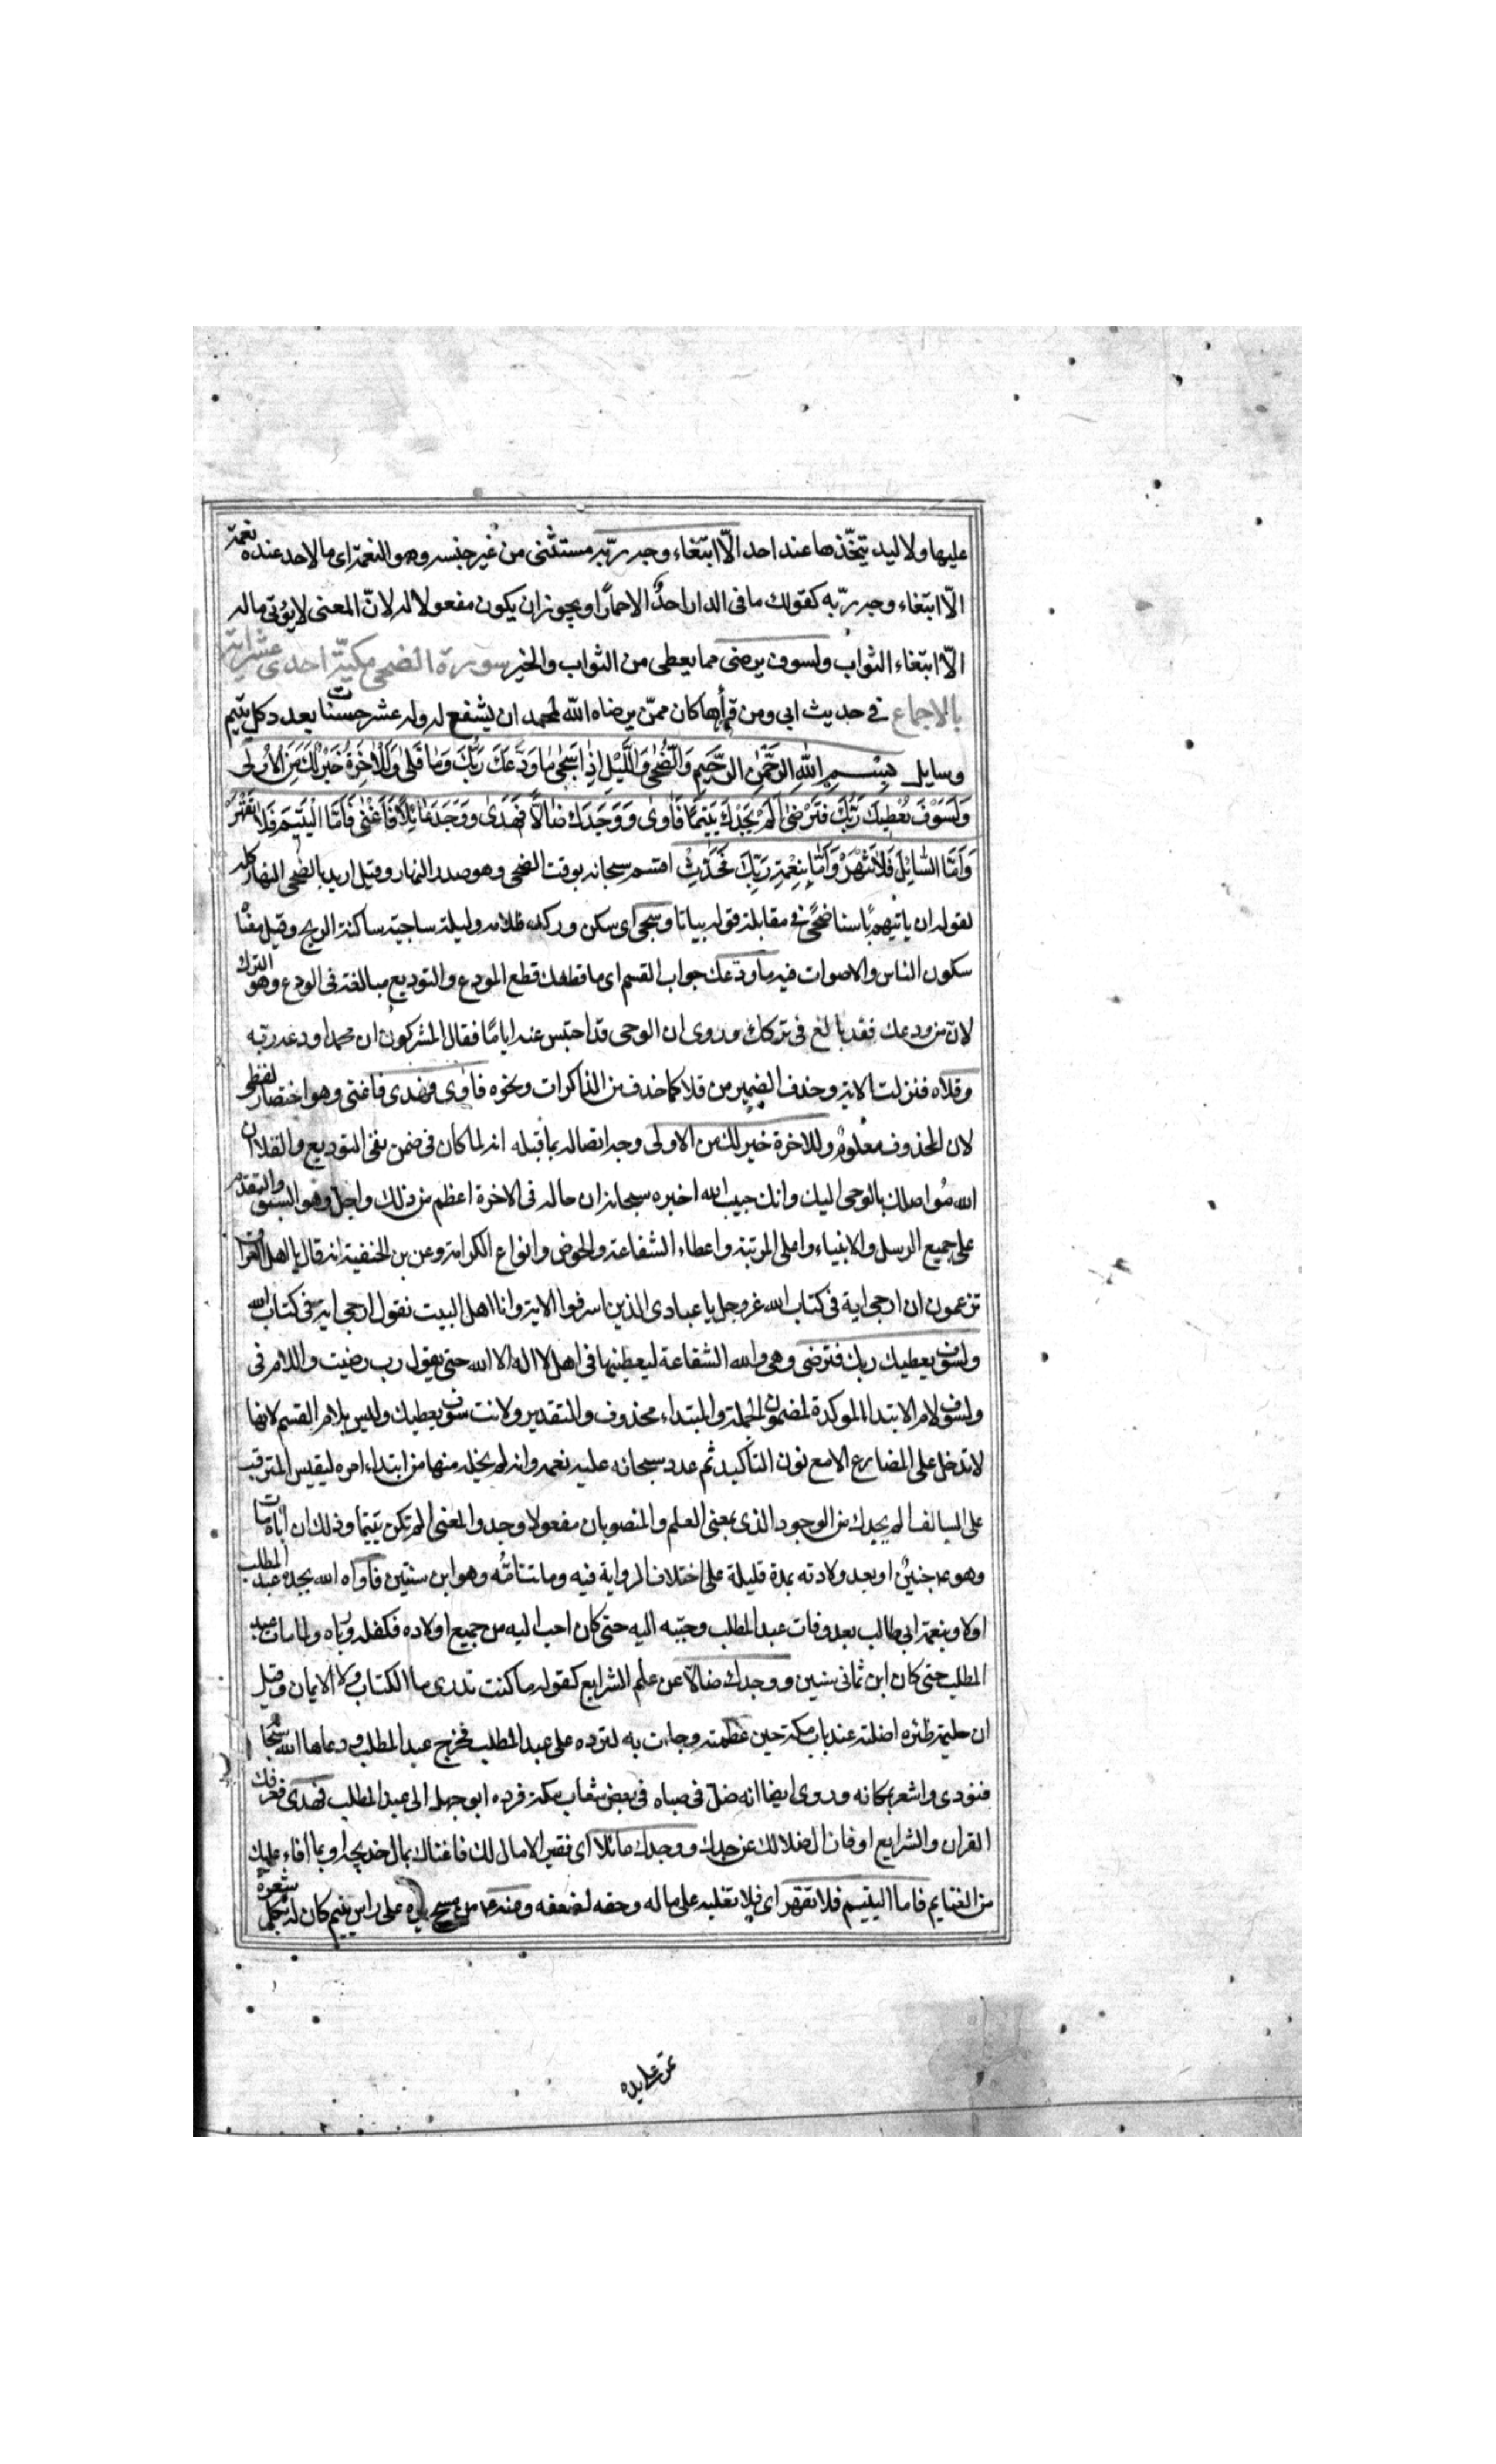 عليها ولا ليد يتخّذها عند احد الّا ابتغاء وجه ربّه مستثنى من غير جنسه وهو النعمة اى ما لاحد عنده نعمة
الّا ابتغاء وجه ربّه كقولك ما فى الدار احدٌ الا حمارًا ويجوز ان يكون مفعولا له لانّ المعنى لا يؤتى ماله
الّا ابتغاء الثواب ولسوف يرضى مما يعطى من الثواب والخير سورة الضحى مكيّة احدى عشر اية
بالاجماع فى حديث ابى ومن قرأها كان ممّن يرضاه الله لمحمد ان يشفع له وله عشر حسنات بعدد كل يتيم
وسايل بسم الله الرحمن الرحيم والضحى والليل اذا سجى ما ودعك ربك وما قلى وللاخرة خير لك من الاولى
ولسوف يعطيك ربك فترضى الم يجدك يتيما فاوى ووجدك ضالا فهدى ووجدك عائلا فاغنى فاما اليتيم فلا تقهر
واما السائل فلا تنهر واما بنعمة ربك فحدث اقسم سبحانه بوقت الضحى وهو صدر النهار وقيل اريد بالضحى النهار كله
لقوله ان ياتيهم بأسنا ضحًى فى مقابلة قوله بياتا وسجى اى سكن وركد ظلامه وليلة ساجية ساكنة الريح وقيل معناه
سكون الناس والاصوات فيه ما ودّعك جواب القسم اى ما قطعك قطع المودع والتوديع مبالغة فى الودع وهو الترك
لان من ودعك فقد بالغ فى تركك وروى ان الوحى قد احتبس عنه اياما فقال المشركون ان محمدا ودعه ربه
وقلاه فنزلت الاية وحذف الضمير من قلا كما حذف من الذاكرات ونحوه فاوى فهدى فاغنى وهو اختصار لفظى
لان المحذوف معلومٌ وللاخرة خير لك من الاولى وجه اتصاله بما قبله انه لما كان فى ضمن نفى التوديع والقلا ان
الله مُواصلك بالوحى اليك وانك حبيب الله اخبره سبحانه ان حاله فى الاخرة اعظم من ذلك واجل وهو السبق والتقدم
على جميع الرسل والانبياء واعلى المرتبة واعطاء الشفاعة والحوض وانواع الكرامة وعن بن الحنفية انه قال يا اهل العراق
تزعمون ان ارجى اية فى كتاب الله عز وجل يا عبادى الذين اسرفوا الاية وانا اهل البيت نقول ارجى اية فى كتاب الله
ولسوف يعطيك ربك فترضى وهى والله الشفاعة ليعطينها فى اهل لا اله الا الله حتى يقول رب رضيت واللام فى
ولسوف لام الابتداء الموكدة لمضمون الجملة والمبتداء محذوف والتقدير ولانت سوف يعطيك وليس بلام القسم لانها
لا تدخل على المضارع الا مع نون التأكيد ثم عدد سبحانه عليه نعمه وانه لم يخله منها من ابتداء امره ليقيس المترقب
على السالف الم يجدك من الوجود الذى بمعنى العلم والمنصوبان مفعولا وجد والمعنى الم تكن يتيما وذلك ان اباه مات
وهو جنينٌ او بعد ولادته بمدة قليلة على اختلاف الرواية فيه وماتت امّه وهو ابن سنتين فاواه الله بجده عبد المطلب
اولا وبعمه ابى طالب بعد وفات عبد المطلب وحببه اليه حتى كان احب اليه من جميع اولاده فكفله ورباه ولما مات عبد
المطلب حتى كان ابن ثمانى سنين ووجدك ضالّا عن علم الشرايع كقوله ما كنت تدرى ما الكتاب ولا الايمان وقيل
ان حليمة ظئره اضلته عند باب مكة حين فطمته وجاءت به لترده على عبد المطلب فخرج عبد المطلب ودعا الله سبحانه
فنودى واشعر بمكانه وروى ايضا انه ضل فى صباه فى بعض شعاب مكة فرده ابو جهل الى عبد المطلب فهدى فعرفك
القران والشرايع او فازال ضلالك عن جدك ووجدك عائلا اى فقيرا لا مال لك فاغناك بمال خديجة او بما افاء عليك
من الغنايم فاما اليتيم فلا تقهر اى فلا تغلبه على ماله وحقه لضعفه وعنه من مسح يده على راس يتيم كان له بكل شعرة
تمر على يده